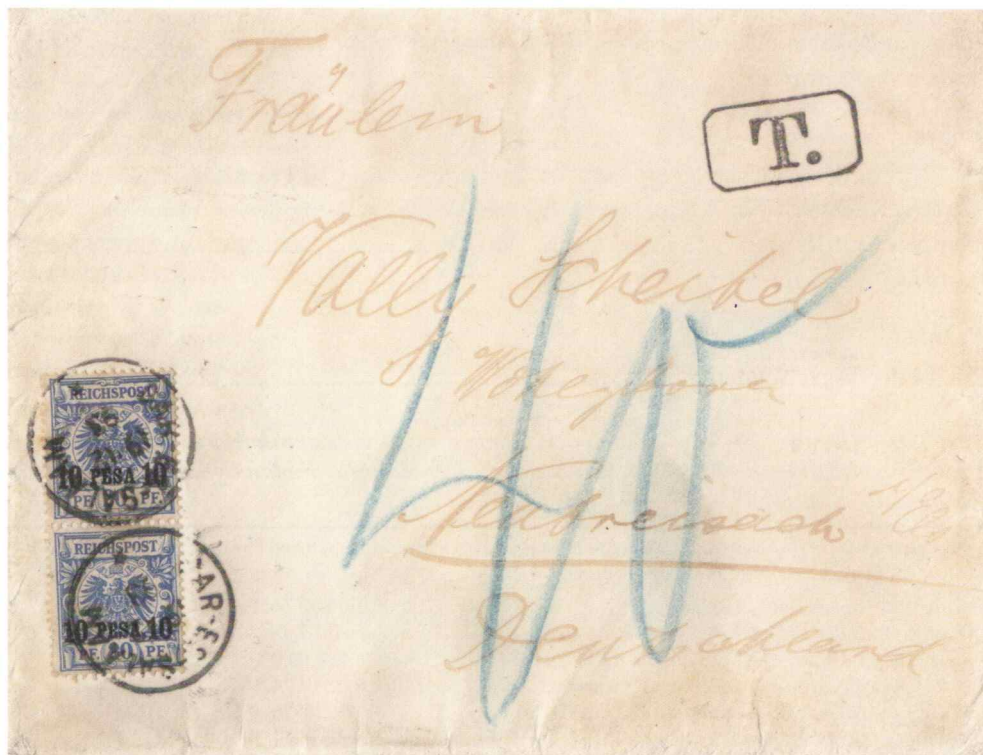 Fräulein
T.
Vally Scheibel
Neubreisach
Deutschland
40
REICHSPOST
10 PESA 10
PF. 20 PF.
REICHSPOST
10 PESA 10
PF. 20 PF.
-AR-ES